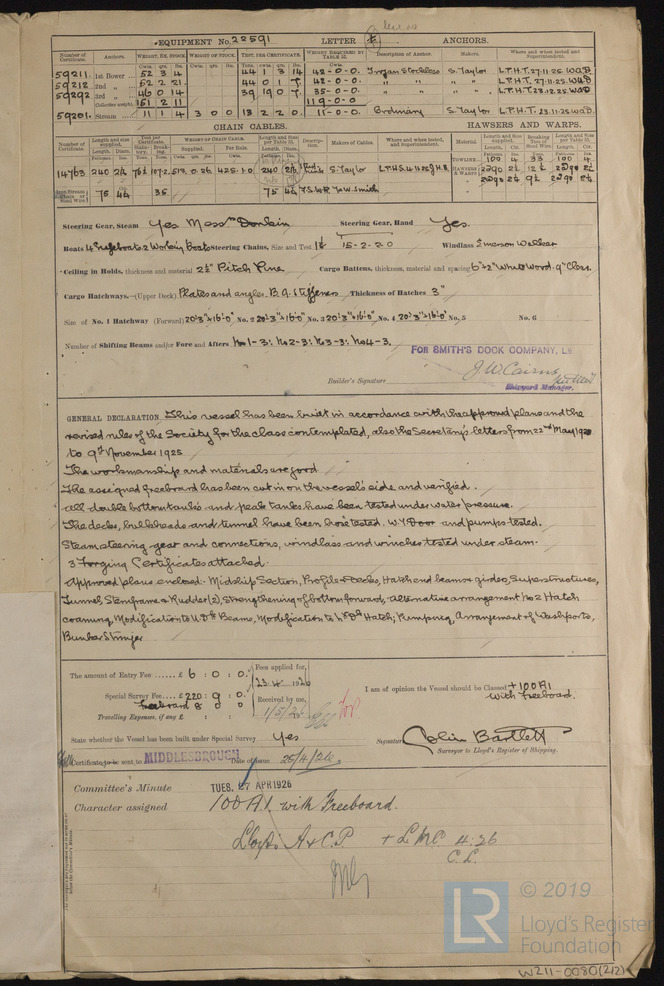 EQUIPMENT No. 22591 LETTER ANCHORS.
Number of Certificate. Anchors. WEIGHT, EX. STOCK WEIGHT OF STOCK. TEST, PER CERTIFICATE. WEIGHT REQUIRED BY TABLE 31. Description of Anchor. Makers. Where and when tested and Superintendent.
59211 1st Bower 52 3 4 44 1 3 14 42-0-0. Trojan Stockless S. Taylor L.P.H.T. 27.11.25. W.A.D.
59212 2nd " 52 2 21 44 0 1 7 42-0-0. " " " " L.P.H.T. 27.11.25. W.A.D.
59292 3rd " 46 0 14 39 19 0 7 35-0-0. " " " " L.P.H.T. 23.12.25 W.A.D.
Collective weight 151 2 11 119-0-0
59201 Stream 11 1 4 3 0 0 13 2 2 0 11-0-0. Ordinary S. Taylor L.P.H.T. 23.11.25 W.A.D.
CHAIN CABLES. HAWSERS AND WARPS.
Number of Certificate. Length and size supplied. Test per Certificate. WEIGHT OF CHAIN CABLE. Length and Size per Table 31. Description. Makers of Cables. Where and when tested, and Superintendent. Material. Length and Size supplied. Breaking Test of Wire. Length and Size per Table 31.
14763 240 S. Taylor
75 4¼ 36 75 4¼ J.W. Smith
TOWLINE 100 4 33 100 4
HAWSERS & WARPS
Steering Gear, Steam Yes Mess^rs Donkin Steering Gear, Hand Yes.
Boats 4 Lifeboats. 2 Working Boats Steering Chains, Size and Test 15-2-2-0 Windlass Emerson Walker
Ceiling in Holds, thickness and material 2½" Pitch Pine Cargo Battens, thickness, material and spacing 6"x2" White Wood. 9" Clear.
Cargo Hatchways.—(Upper Deck) Plates and angles. B.A. Stiffeners Thickness of Hatches 3"
Size of No. 1 Hatchway (Forward) 20'3"x16'0" No. 2 20'3"x16'0" No. 3 20'3"x16'0" No. 4 20'3"x16'0" No. 5 No. 6
Number of Shifting Beams and/or Fore and Afters No 1-3: No 2-3: No 3-3: No 4-3.
FOR SMITH'S DOCK COMPANY, L^d
J.W. Cairns
Builder's Signature Shipyard Manager.
GENERAL DECLARATION This vessel has been built in accordance with the approved plans and the
revised rules of the Society for the class contemplated, also the Secretary's letters from 22nd May 1925
to 9th November 1925
The workmanship and materials are good.
The assigned Freeboard has been cut in on the vessel's side and verified.
All double bottom tanks and peak tanks have been tested under water pressure.
The decks, bulkheads and tunnel have been hose tested. W.T. Door and pumps tested.
Steam steering gear and connections, windlass and winches tested under steam.
3 Forging Certificates attached.
Approved plans enclosed. Midship Section, Profile & Decks, Hatch end beams & girders, Superstructures,
Tunnel, Sternframe & Rudder (2), Strengthening of bottom forward, Alternative arrangement No 2 Hatch
coaming, Modification to U. Dk Beams, Modification to Hatch; Pumping, Arrangement of Washports,
Bunker Stringer
The amount of Entry Fee ...... £ 6 : 0 : 0. Fees applied for, 23.4.1926
Special Survey Fee.... £ 220 : 9 : 0. Received by me, 1/5/26
Freeboard 8 0 0
Travelling Expenses, if any £ : :
I am of opinion the Vessel should be Classed +100A1
with Freeboard.
State whether the Vessel has been built under Special Survey Yes
Signature Colin Bartlett
Surveyor to Lloyd's Register of Shipping.
Certificate to be sent to MIDDLESBROUGH Date of issue 28/4/26.
Committee's Minute TUES. 27 APR 1926
Character assigned 100A1. with Freeboard.
Lloyds A & C.P. + LMC 4.26
C.L.
LR
© 2019
Lloyd's Register
Foundation
W211-0080(2/2)